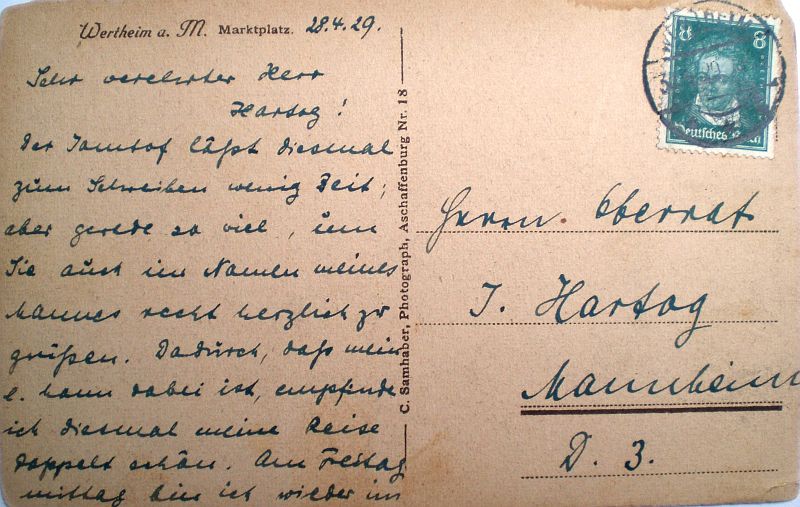 Wertheim a. M. Marktplatz. 28.4.29.
Sehr verehrter Herr
Hartog!
Der Tauntof läßt diesmal
zum Schreiben wenig Zeit;
aber gerade so viel, um
Sie auch im Namen meines
Mannes recht herzlich zu
grüßen. Dadurch, daß mein
l. Mann dabei ist, empfinde
ich diesmal meine Reise
doppelt schön. Am Freitag
mittag bin ich wieder im
C. Samhaber, Photograph, Aschaffenburg Nr. 18
8 8
Deutsches Reich
Herrn Oberrat
J. Hartog
Mannheim
D. 3.